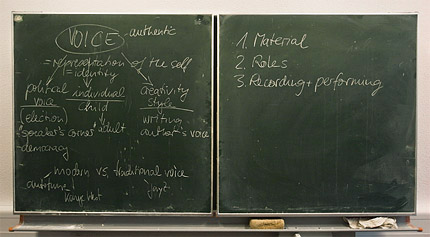 VOICE - authentic
= representation of the self
! = identity
political individual creativity
voice child style
(election) adult writing
speaker's corner author's voice
democracy
modern vs. traditional voice
autotune
Kanye West
1. Material
2. Roles
3. Recording + performing